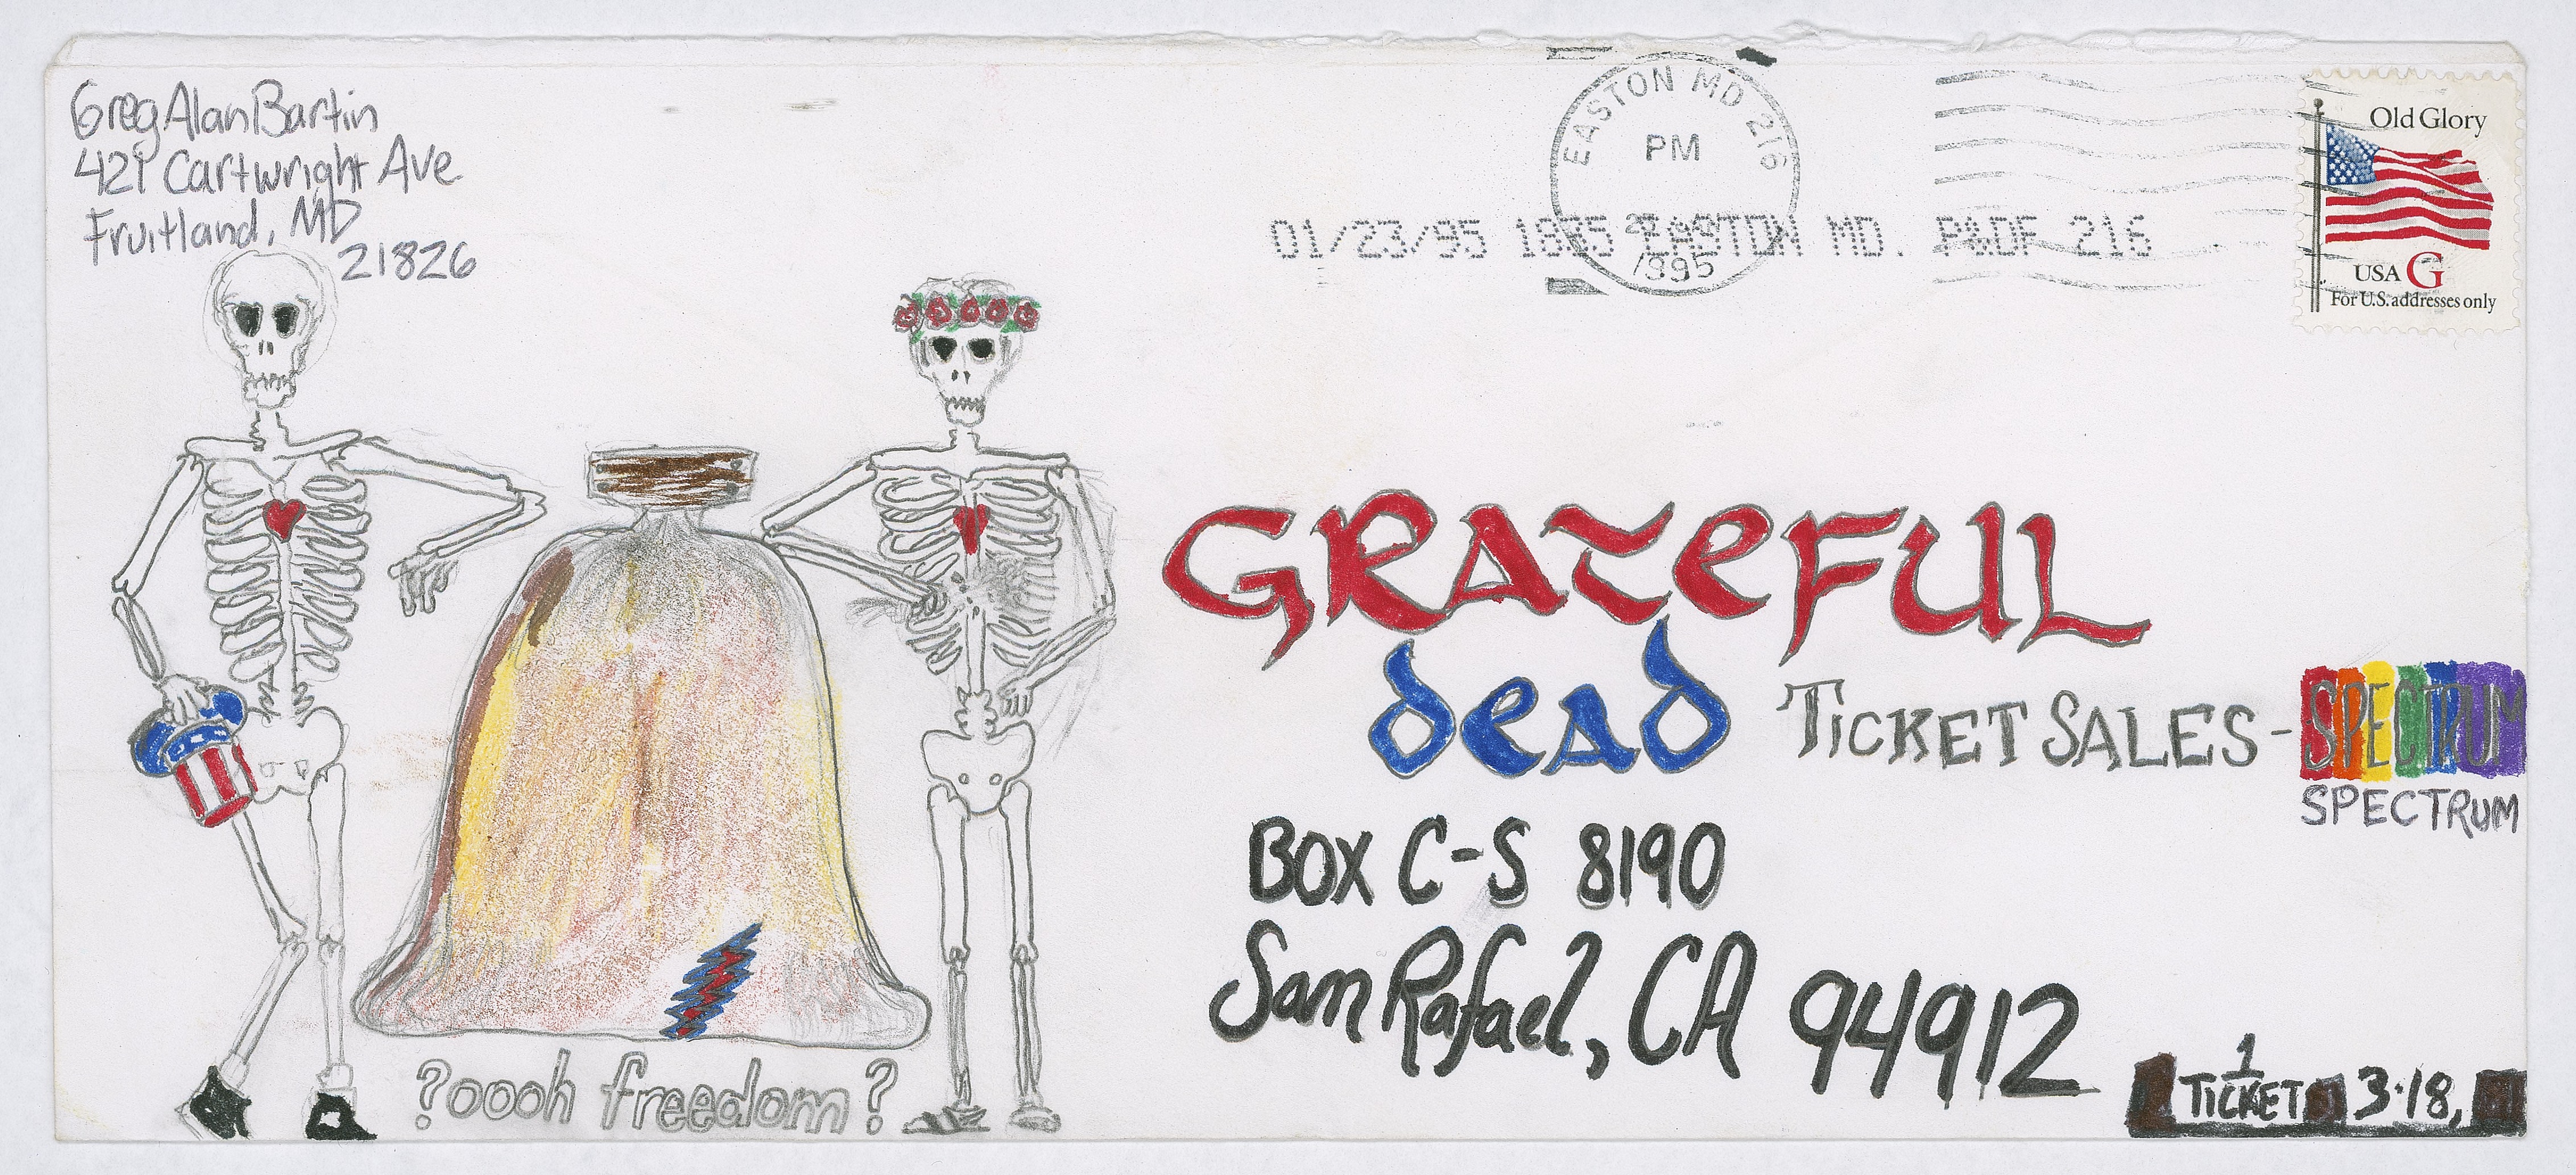 Greg Alan Bartin
421 Cartwright Ave
Fruitland, MD
21826
EASTON MD 216
PM
1995
01/23/95 1835 EASTON MD. P&DF 216
Old Glory
USA G
For U.S. addresses only
GRATEFUL
DEAD TICKET SALES - SPECTRUM
SPECTRUM
BOX C-S 8190
San Rafael, CA 94912
1
TICKET 3·18,
?oooh freedom?